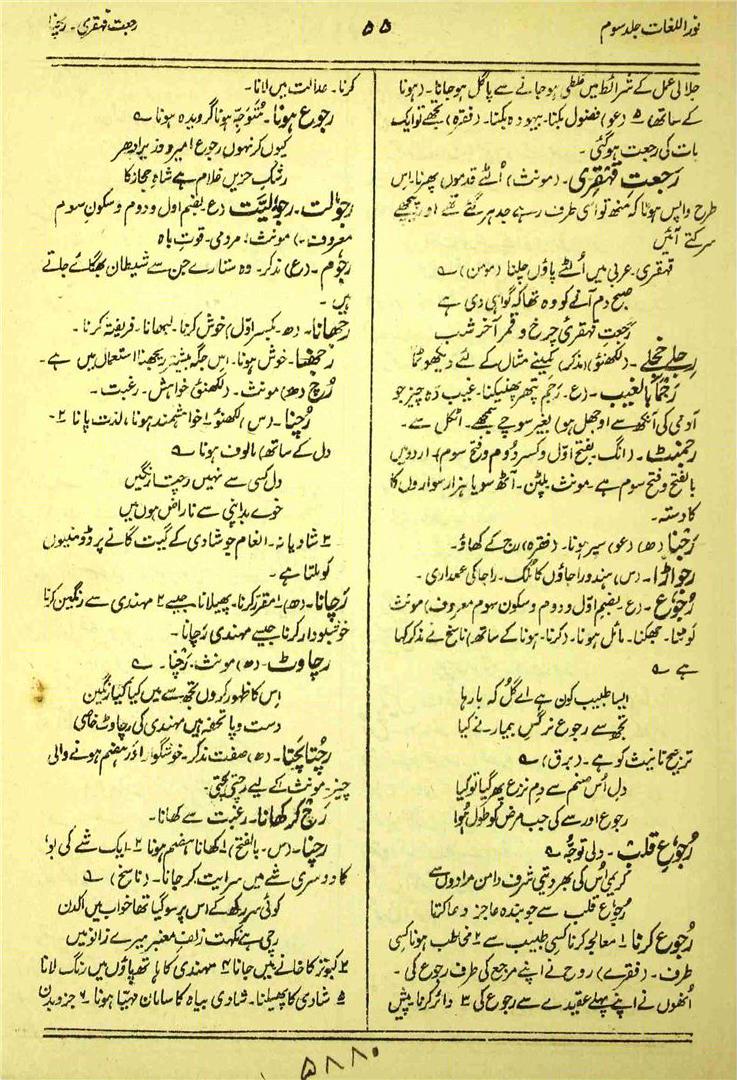 نور اللغات جلد سوم
۵۵
رجعت قہقری۔ رجنا
جلالی عمل کے شرائط میں غلطی ہو جانے سے پاگل ہو جانا۔ (ہونا
کے ساتھ) ۵ (عو) فضول بکنا۔ بیہودہ بکنا۔ (فقرہ) تجھے تو ایک
بات کی رجعت ہو گئی۔
رجعتِ قہقری۔ (مونث) اُلٹے قدموں پھرنا۔ اس
طرح واپس ہونا کہ منھ تو اسی طرف رہے جدھر گئے تھے اور پیچھے
سرکتے آئیں
قہقری۔ عربی میں اُلٹے پاؤں چلنا (مومن) ؎
صبح دم آنے کو وہ تھا کہ گواہی دی ہے
رجعتِ قہقری چرخ و قمر آخر شب
رجلے خجلے۔ (لکھنؤ) (مذکر) کمینے مثال کے لئے دیکھو
رَجْماً بِالغیب۔ (ع۔ رَجْم پتھر پھینکنا۔ غیب وہ چیز جو
آدمی کی آنکھ سے اوجھل ہو) بغیر سوچے سمجھے۔ اٹکل سے۔
رجمنٹ۔ (انگ بفتح اوّل و کسر دوم و فتح سوم) اردو میں
بالفتح و فتح سوم ہے۔ مونث پلٹن۔ آٹھ سو یا ہزار سواروں کا
کا دستہ۔
رَجنا (ھ) (عو) سیر ہونا۔ (فقرہ) رج کے کھاؤ۔
رجواڑا۔ (س) ہندو راجاؤں کا ملک۔ راجا کی عملداری۔
رُجُوع۔ (ع۔ بضم اوّل و دوم و سکون سوم معروف) مونث
لوٹنا۔ جھکنا۔ مائل ہونا۔ (کرنا۔ ہونا کے ساتھ) ناسخ نے مذکر کہا
ہے ؎
ایسا طبیب کون ہے اے گل کہ بارہا
تجھ سے رجوع نرگسِ بیمار نے کیا
ترجیح تانیث کو ہے۔ (برق) ؎
دل اُس صنم سے دمِ نزع پھر گیا تو کیا
رجوع اور سے کی جب مرض کو طول ہوا
رُجوعِ قلب۔ دلی توجّہ ؎
کریمی اُس کی بھر دیتی شرف دامن مرادوں سے
رجوعِ قلب سے جو بندہ عاجز دعا کرتا
رُجوع کرنا ۱ معالجہ کرنا کسی طبیب سے ۲ مخاطب ہونا کسی
طرف۔ (فقرے) روح نے اپنے مرجع کی طرف رجوع کی۔
اُنھوں نے اپنے پہلے عقیدے سے رجوع کی ۳ دائر کرنا۔ پیش
کرنا۔ عدالت میں لانا۔
رجوع ہونا۔ مُتَوَجّہ ہونا گرویدہ ہونا ؎
کیوں کر نہ ہوں رجوع امیر و وزیر ادھر
رشک حزیں غلام ہے شاہِ حجاز کا
رجولت۔ رجولیّت (ع۔ بضم اول و دوم و سکون سوم
معروف۔) مونث؛ مردمی۔ قوتِ باہ
رجوم۔ (ع) مذکر۔ وہ ستارے جن سے شیطان بھگائے جاتے
ہیں۔
رجھانا۔ (ھ۔ بکسر اوّل) خوش کرنا۔ لبھانا۔ فریفتہ کرنا۔
رجھنا۔ خوش ہونا۔ اس جگہ بیشتر ریجھنا استعمال میں ہے۔
رُچ (ھ) مونث۔ (لکھنؤ) خواہش۔ رغبت۔
رُچنا۔ (س) لکھنؤ ۱ خواہشمند ہونا، لذت پانا ۲۔
دل کے ساتھ) مالوف ہونا ؎
دل کسی سے نہیں رچتا رنگیں
خوئے بد اپنی سے ناراض ہوں میں
۳ شادیانہ۔ انعام جو شادی کے گیت گانے پر ڈومنیوں
کو ملتا ہے۔
رَچانا۔ (ھ) ۱ مقرر کرنا۔ پھیلانا جیسے ۲ مہندی سے رنگین کرنا
خوشبودار کرنا جیسے مہندی رچانا۔
رچاوٹ۔ (ھ) مونث۔ رچنا۔ ؎
اس کا ظہور کروں تجھ سے میں کیا کیا رنگین
دست و پا تحفہ ہیں مہندی کی رچاوٹ خاصی
رچتا پچتا۔ (ھ) صفت مذکر۔ خوشگوار اور ہضم ہونے والی
چیز۔ مونث کے لیے رچتی پچتی۔
رَچ کر کھانا۔ رغبت سے کھانا۔
رچنا۔ (س۔ بالفتح) ۱ کھانا ہضم ہونا ۲۔ ایک شے کی بو
کا دوسری شے میں سرایت کر جانا۔ (ناسخ) ؎
کوئی سر رکھ کے اس پر سو گیا تھا خواب میں اکدن
رچی ہے نکہت زلفِ معنبر میرے زانو میں
۳ کبوتر کا خانے میں جانا ۴ مہندی کا ہاتھ پاؤں میں رنگ لانا
۵ شادی کا پھیلنا۔ شادی بیاہ کا سامان مہیّا ہونا۔ ۶ جزوِ بدن
۵۸۸۰